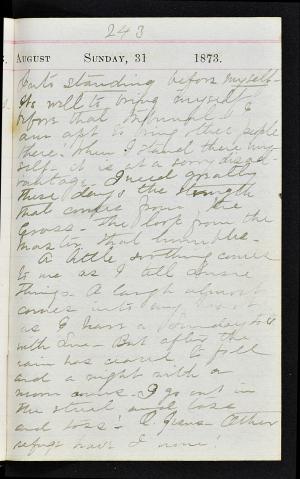 243
August Sunday, 31 1873.
standing before myself -
Its well to bring myself
before that tribunal - I
am apt to bring other people
there. When I stand there my-
self - it is at a sorry disad-
vantage. I need greatly
these days the strength
that comes from the
Cross - The look from the
Master that humbles -
A little soothing comes
to me as I tell Louise
things - A laugh almost
comes into my heart
as I have a
with Sue - But after the
rain has ceased to fall
and a night with a
moon comes - I go out in
the street and toss
and toss! O Jesus Other
refuge have I none!